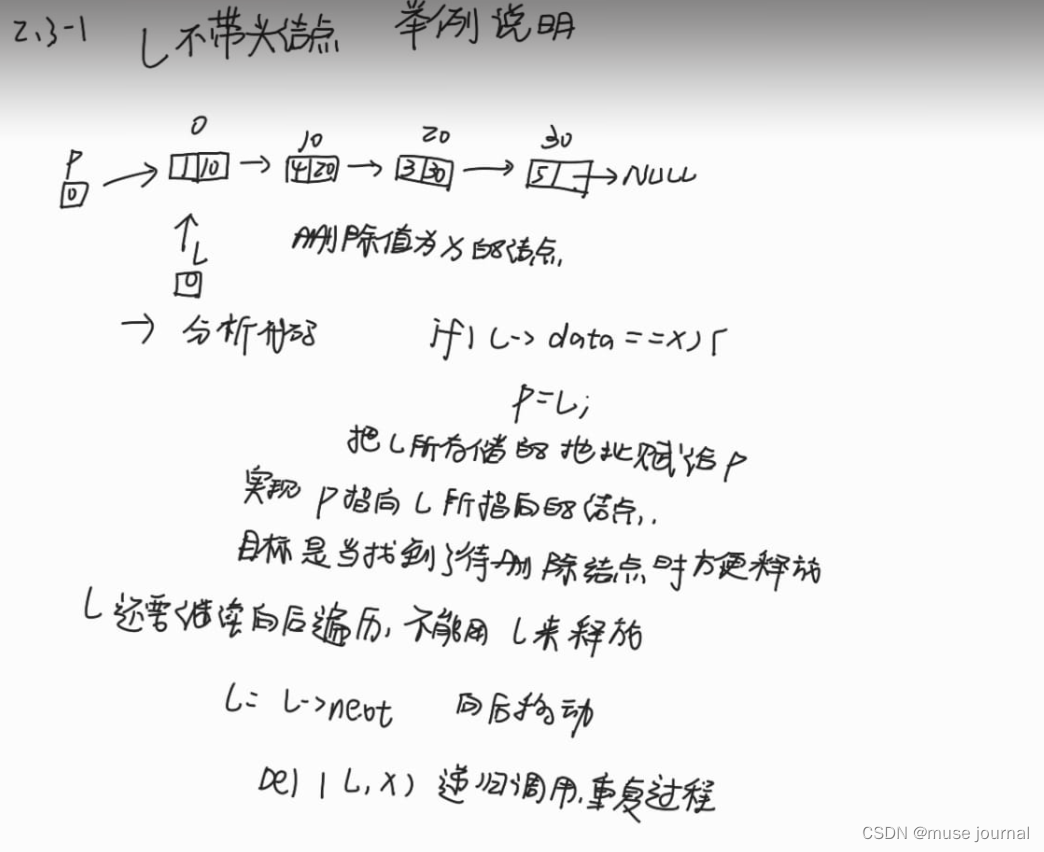 2.3-1 L不带头结点 举例说明
0 10 20 30
P 0 1 10 4 20 3 30 5 NULL
L 0
删除值为X的结点.
→ 分析代码 if(L->data==x){
P=L;
把L所存储的地址赋给P
实现P指向L所指向的结点..
目标是当找到了待删除结点时方便释放
L还需继续向后遍历,不能用L来释放
L=L->next 向后移动
Del(L,X)递归调用.重复过程
CSDN @muse journal